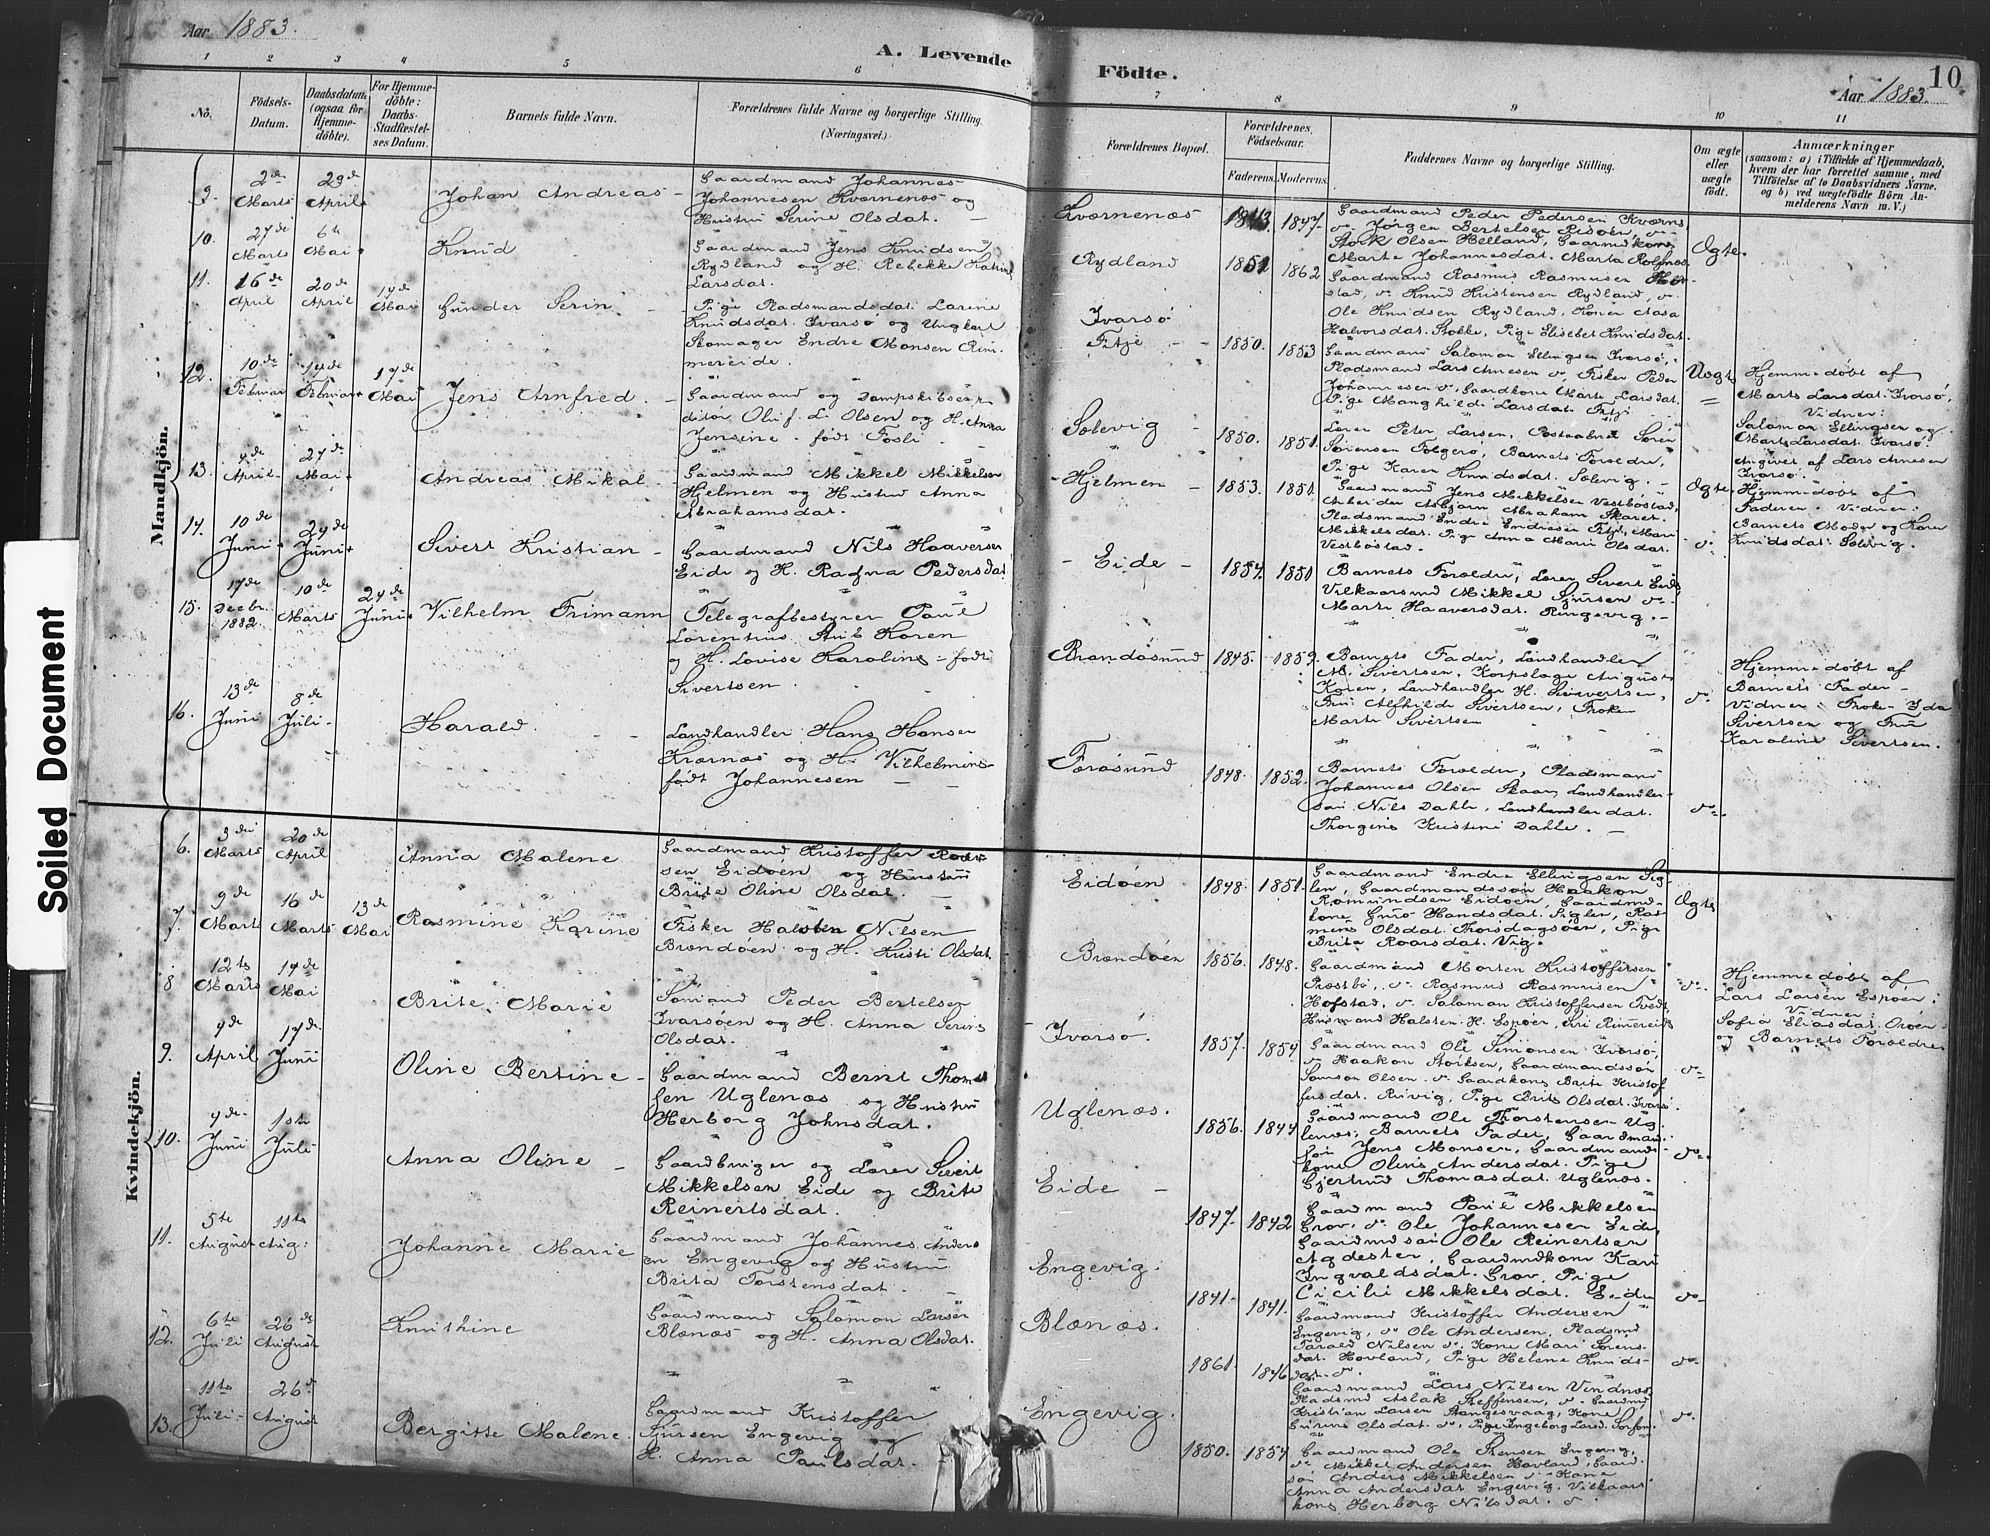 Aar 1883.
A. Levende Födte.
Aar 1883.
10
1 2 3 4 5 6 7 8 9 10 11
No.
Födsels-Datum.
Daabsdatum (ogsaa for Hjemmedöbte).
For Hjemmedöbte: Daabs-Stadfæstelses Datum.
Barnets fulde Navn.
Forældrenes fulde Navne og borgerlige Stilling. (Næringsvei.)
Forældrenes Bopæl.
Forældrenes Födselsaar.
Faderens. Moderens.
Faddernes Navne og borgerlige Stilling.
Om ægte eller uægte födt.
Anmærkninger
(saasom: a) i Tilfælde af Hjemmedaab,
hvem der har forrettet samme, med
Tilföielse af to Daabsvidners Navne.
og b) ved uægtefödte Börn An-
melderens Navn m. V.)
Soiled Document
Mandkjön.
9. 2de Marts 29de April
Johan Andreas
Gaardmand Johannes
Johannesen Kværnenæs og
Hustru Serine Olsdat.
Kværnenæs 1843. 1847.
Gaardmand Peder Pedersen Kværns
do Jörgen Bertelsen Risöen, do
Störk Olsen Helland, Gaarmdkone
Marte Johannesdat.
Ægte.
10. 27de Marts 6te Mai
Knud
Gaardmand Jens Knudsen
Rydland og H. Rebekke Katrine
Larsdat.
Rydland 1851 1862
Gaardmand Rasmus Rasmusen
stad, do Knud Kristensen Rydland, do
Ole Knudsen Rydland, Koner Aasa
Halvorsdat. Stokke, Pige Elisebet Knudsdat.
11. 16de April 20de April 14de Mai
Gunder Serin
Pige Pladsmandsdat. Larine
Knudsdat. Ivarsö og Ungkarl
Skomager Endre Monsen Rim-
mereide.
Ivarsö
Fitje 1850. 1853
Gaardmand Salamon Ellingsen Ivarsö,
Pladsmand Lars Arnesen do Fisker Peder
Johannesen do, Gaardkone Marte Larsdat.
Pige Manghild Larsdat. Fitje
Uægte
Hjemmedöbt af
Marte Larsdat. Ivarsö,
Vidner:
Salamon Ellingsen og
Marte Larsdat. Ivarsö.
Angivet af Lars Arnesen
Ivarsö.
12. 10de Februar 14de Februar 17de Mai
Jens Arnfred
Gaardmand og Dampskibsexpe-
ditör Oluf L. Olsen og H. Anna
Jensine födt Fosli
Sælevig 1850. 1851.
Lærer Peter Larsen, Postaabner Sören
Sörensen Folgerö, Barnets Foreldre,
Pige Karen Knudsdat. Sælevig.
Ægte.
Hjemmedöbt af
Faderen. Vidner:
Barnets Moder og Karen
Knudsdat. Sælevig.
13. 4de April 27de Mai
Andreas Mikal
Gaardmand Mikkel Mikkelsen
Hjelmen og Hustru Anna
Abrahamsdat.
Hjelmen 1853. 1851.
Gaardmand Jens Mikkelsen Vestböstad,
Arbeider Asbjörn Abraham Skaret.
Pladsmand Endre Endresen Fitje, Mari
Mikkelsdat. Pige Anna Marie Olsdat.
Vestböstad.
do
14. 10de Juni 24de Juni
Sivert Kristian
Gaardmand Nils Haaversen
Eide og H. Ragna Pedersdat.
Eide 1854. 1850
Barnets Foreldre, Lærer Sivert Eide
Vilkaarsmd Mikkel Sjursen do
Marte Haaversdat. Ringevig.
15. 17de Decbr. 1882. 10de Marts 24de Juni
Vilhelm Frimann
Telegrafbestyrer Paul
Lorentius Aub Koren
og H. Lovise Karoline födt
Sivertsen.
Brandösund 1845. 1859.
Barnets Fader, Landhandler
M. Sivertsen, Korpslæge August
Koren, Landhandler H. Sivertsen,
Fru Alfhilde Sivertsen, Fröken
Marte Sivertsen
do
Hjemmedöbt af
Barnets Fader
Vidner: Frök. Ida
Sivertsen og Fru
Karoline Sivertsen.
16. 13de Juni 8de Juli
Harald
Landhandler Hans Hansen
Krærnæs og H. Vilhelmine
födt Johannesen
Foræsund 1848. 1852.
Barnets Foreldre, Pladsmand
Johannes Olsen Skaar, Landhandler-
sön Nils Dahle, Landhandlerdat.
Thorgine Kristine Dahle.
do
Kvindekjön.
6. 3die Marts 20de April
Anna Malene
Gaardmand Kristoffer Roar-
sen Eidöen og Hustru
Brite Oline Olsdat.
Eidöen 1848. 1851.
Gaardmand Endre Ellingsen Sig-
len, Gaardmandssön Haakon
Romundsen Eidöen, Gaardmd-
kone Guro Hansdat. Siglen, Ras-
mine Olsdat. Thorsdagsöen, Pige
Brita Roarsdat. Vig.
Ægte
7. 9de Marts 16de Marts 13de Mai
Rasmine Karine
Fisker Halsten Nilsen
Brandöen og H. Kristi Olsdat.
Brandöen 1856. 1848.
Gaardmand Morten Kristoffersen
Præstbö, do Rasmus Rasmusen
Hofstad, do Salamon Kristoffersen Tvedt
Husmand Halsten H. Espöen, Siri Rimereide
do
Hjemmedöbt af
Lars Larsen Espöen:
Vidner:
Sofia Eliasdat. Oröen
og Barnets Foreldre
8 12te Marts 14de Mai
Brite Marie
Sömand Peder Bertelsen
Ivarsöen og H. Anna Serine
Olsdat.
Ivarsö. 1857. 1854
Gaardmand Ole Simonsen Ivarsö,
do Haakon Störksen, Gaardmandssön
Samson Olsen do Gaardkone Brite Kristof
fersdat. Risvig, Pige Brite Olsdat. Ivarsö
do
9. 4de April 17de Juni
Oline Bertine
Gaardmand Bernt Thom-
sen Uglenæs og Hustru
Herborg Johnsdat.
Uglenæs. 1856. 1844
Gaardmand Ole Thorstensen Ug-
lenæs, Barnets Fader, Gaardmand-
sön Jens Monsen, Gaardmands-
kone Oline Andersdat. Pige
Gjertrud Thomasdat. Uglenæs.
do
10. 4de Juni 1ste Juli
Anna Oline
Gaardbruger og Lærer Sivert
Mikkelsen Eide og Brite
Reinertsdat.
Eide 1847. 1842
Gaardmand Paul Mikkelsen
Grov, do Ole Johannesen Eide,
Gaardmdsön Ole Reinertsen
Agdester, Gaardmdkone Kari
Ingvaldsdat. Grov, Pige
Cicilie Mikkelsdat. Eide
do
11. 5te August 11te Aug:
Johanne Marie
Gaardmand Johannes Anders-
en Engevig og Hustru
Brita Torstensdat.
Engevig. 1841. 1841.
Gaardmand Kristoffer Andersen
Engevig, do Ole Andersen, Pladsmd
Tarald Nilsen do Kone Mari Sörens-
dat. Hovland, Pige Helene Knuds-
dat. do
do
12. 6te Juli 26de August
Knuthine
Gaardmand Salamon Larsen
Blænæs og H. Anna Olsdat.
Blænæs. 1861. 1846
Gaardmand Lars Nilsen Vindnæs
Pladsmd Aslak Steffensen, do Gaardmd
Kristian Larsen Stangesvaag, Kone
Serine Olsdat. do, Pige Ingeborg Larsd.
do
13. 11te Juli 26de August
Bergitte Malene
Gaardmand Kristoffer
Sjursen Engevig og
H. Anna Paulsdat.
Engevig. 1850. 1854
Gaardmand Ole Stensen Engevig,
do Mikkel Andersen Hovland, Gaard-
sön Anders Mikkelsen do Kone
Anna Andersdat. Engevig, Vilkaars-
kone Herborg Nilsdat. do